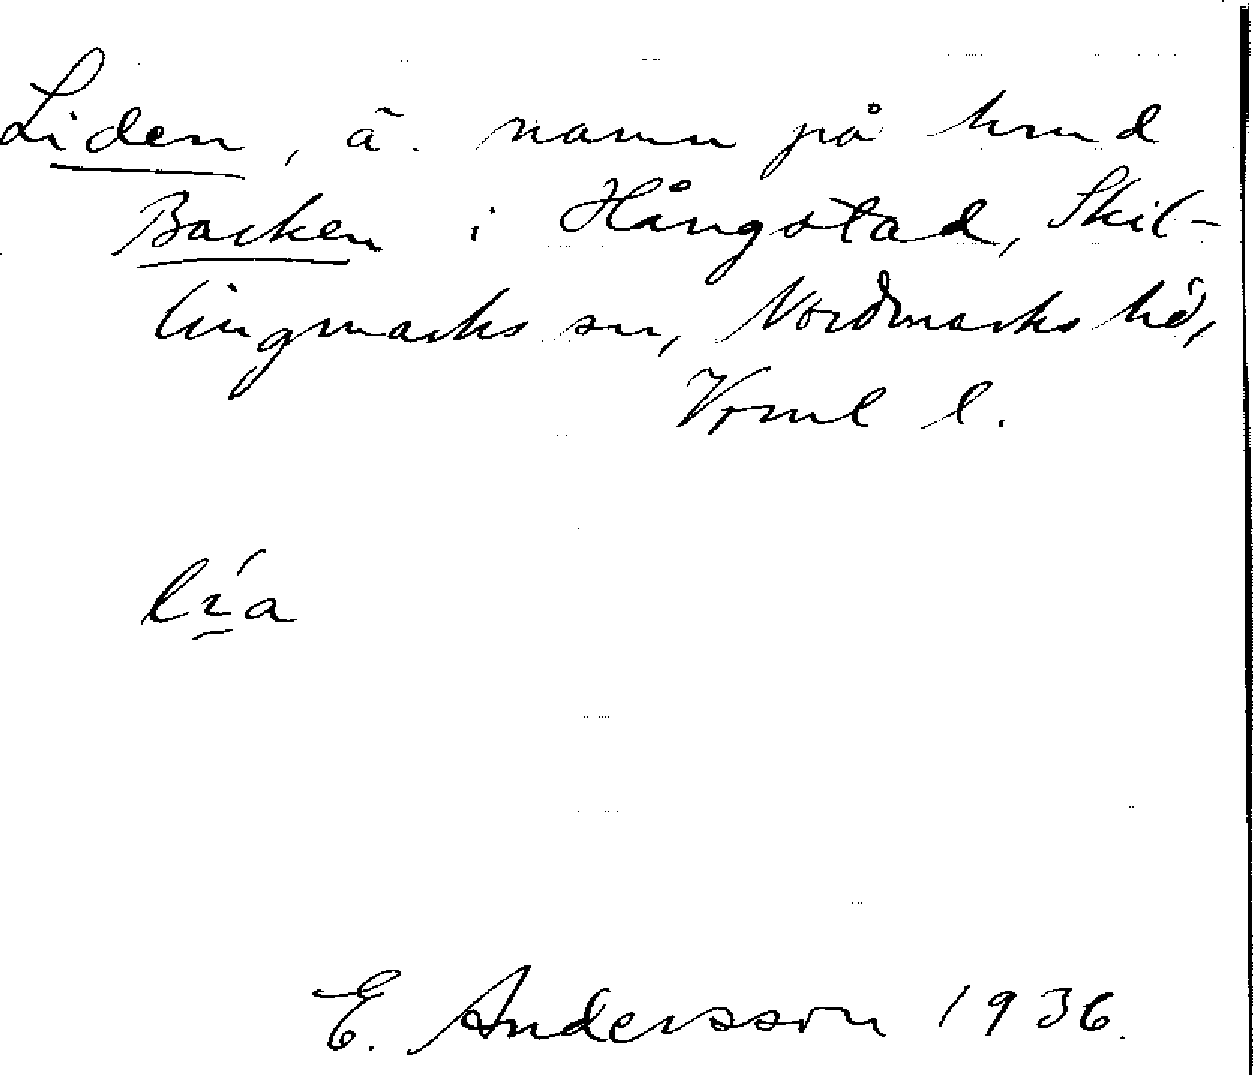 Liden, ä. namn på hmd
Backen i Hångstad, Skil-
lingmarks sn, Nordmarks hd,
Vrml l.
lía
E. Andersson 1936.